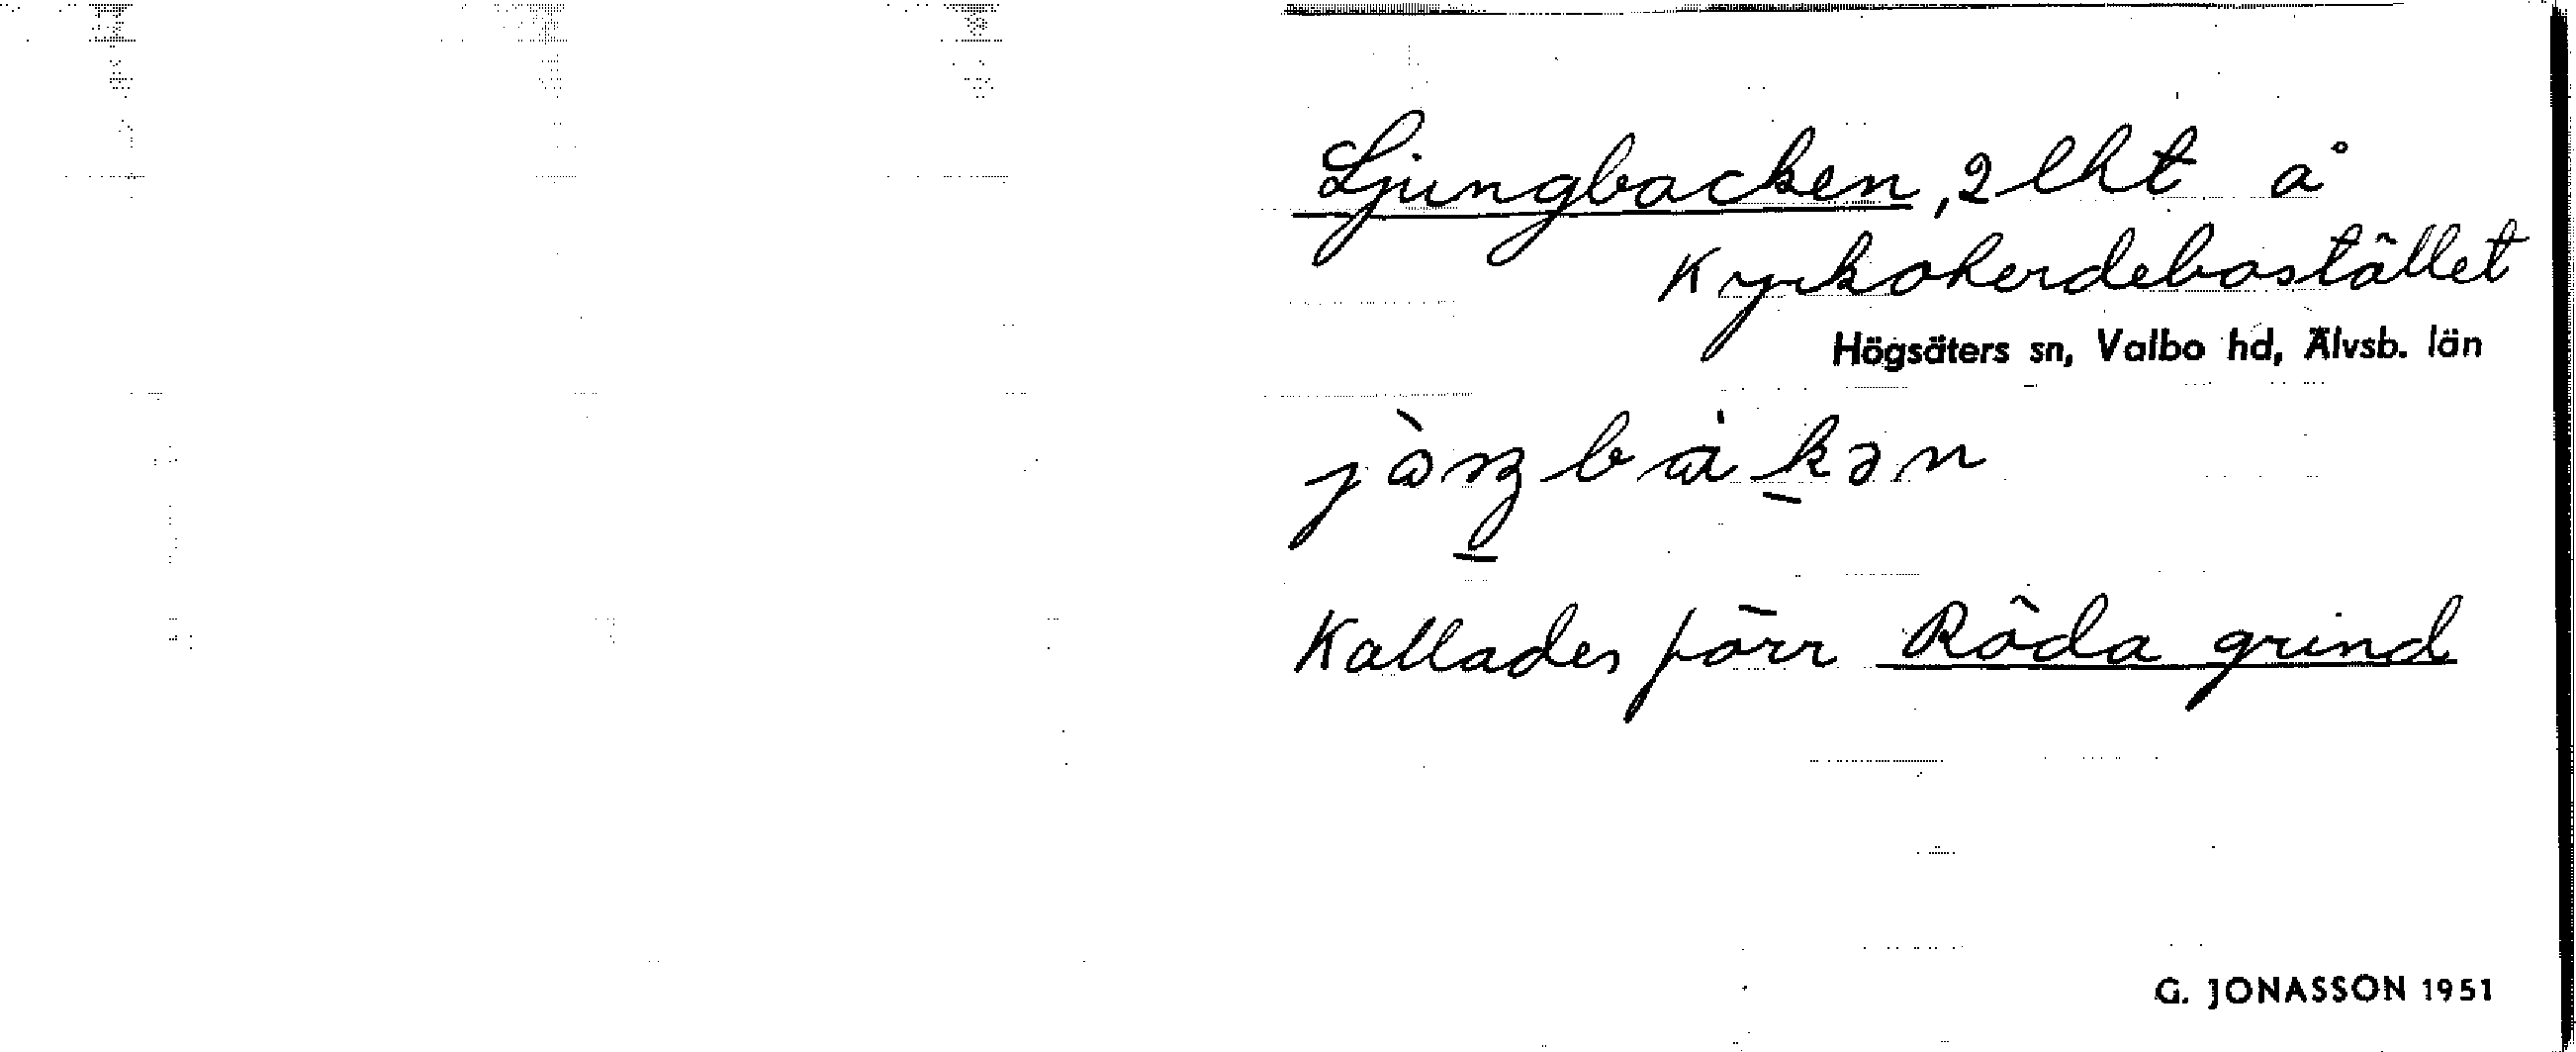 Ljungbacken, 2 lht å
Kyrkoherdebostället
Högsäters sn, Valbo hd, Älvsb. län
Kallades förr Röda grind
G. JONASSON 1951